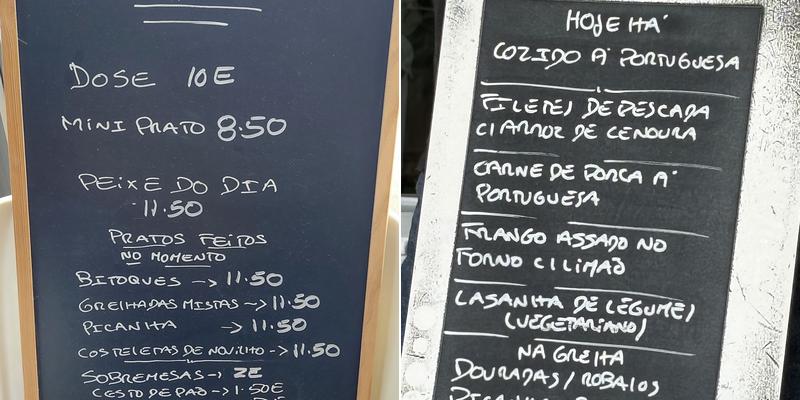 DOSE 10E
MINI PRATO 8.50
PEIXE DO DIA
11.50
PRATOS FEITOS
NO MOMENTO
BITOQUES -> 11.50
GRELHADAS MISTAS -> 11.50
PICANHA -> 11.50
COSTELETAS DE NOVILHO -> 11.50
SOBREMESAS -> 2E
CESTO DE PÃO -> 1.50E
HOJE HÁ
COZIDO Á PORTUGUESA
FILETES DE PESCADA
C/ ARROZ DE CENOURA
CARNE DE PORCA Á
PORTUGUESA
FRANGO ASSADO NO
FORNO C/ LIMÃO
LASANHA DE LEGUMES
(VEGETARIANO)
NA GRELHA
DOURADAS / ROBALOS